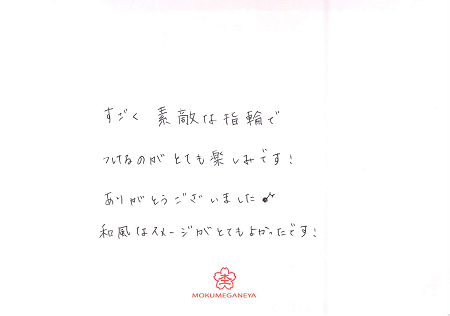 すごく 素敵な指輪で
つけるのがとても楽しみです!
ありがとうございました♪
和風イメージがとてもよかったです!
MOKUMEGANEYA